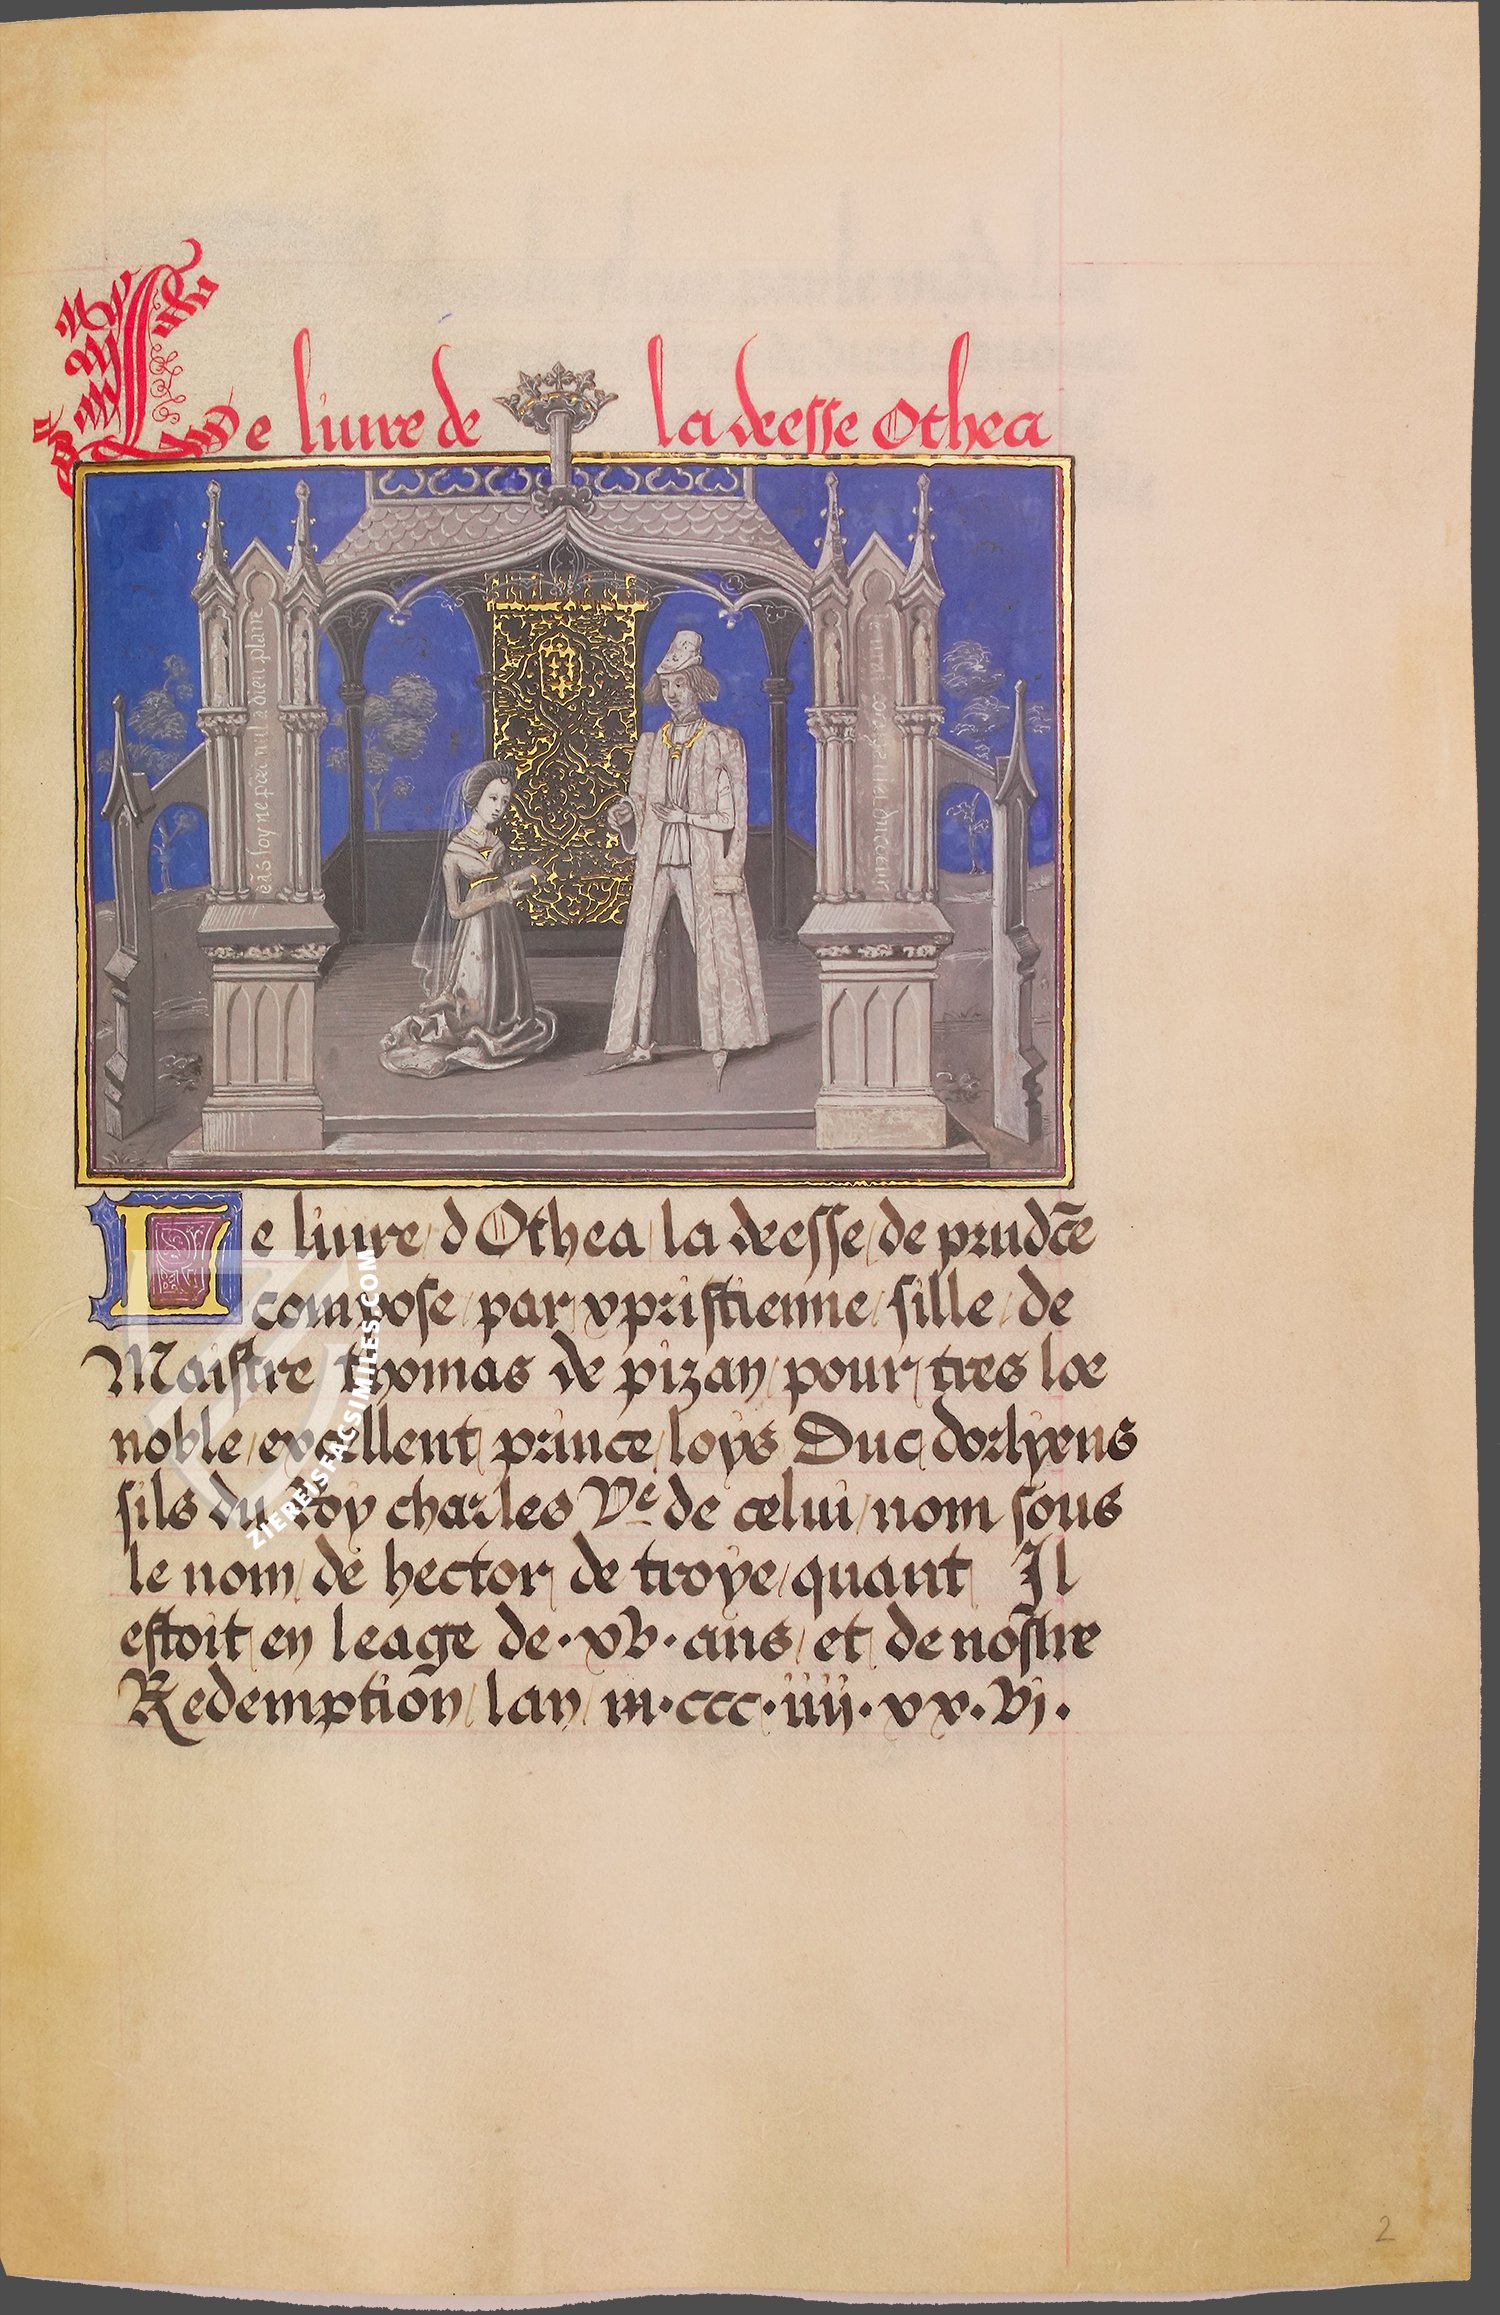 Le liure de la deesse Othea
eās foy ne pēa nul a dieu plaire
Le liure d Othea la deesse de prudēe
compose par xpristienne fille de
Maistre thomas de pizan pour tres
noble excellent prince loys Duc dorlyens
fils du Roy charles Ve de celui nom sous
le nom de hector de troye quant Il
estoit en leage de · xv · ans et de nostre
Redemptiōn lan m·ccc·iiij·xx·vj·
ZIEREISFACSIMILES.COM
2